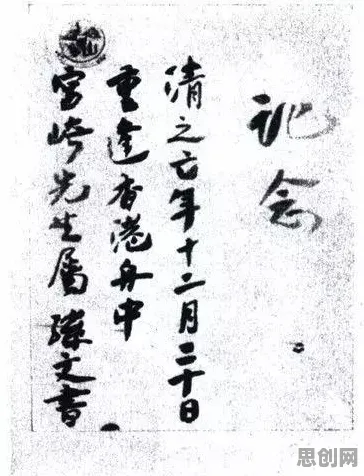 記念
清之亡年十二月二十日
重逢香港舟中
宮崎先生属 孫文書
思创网